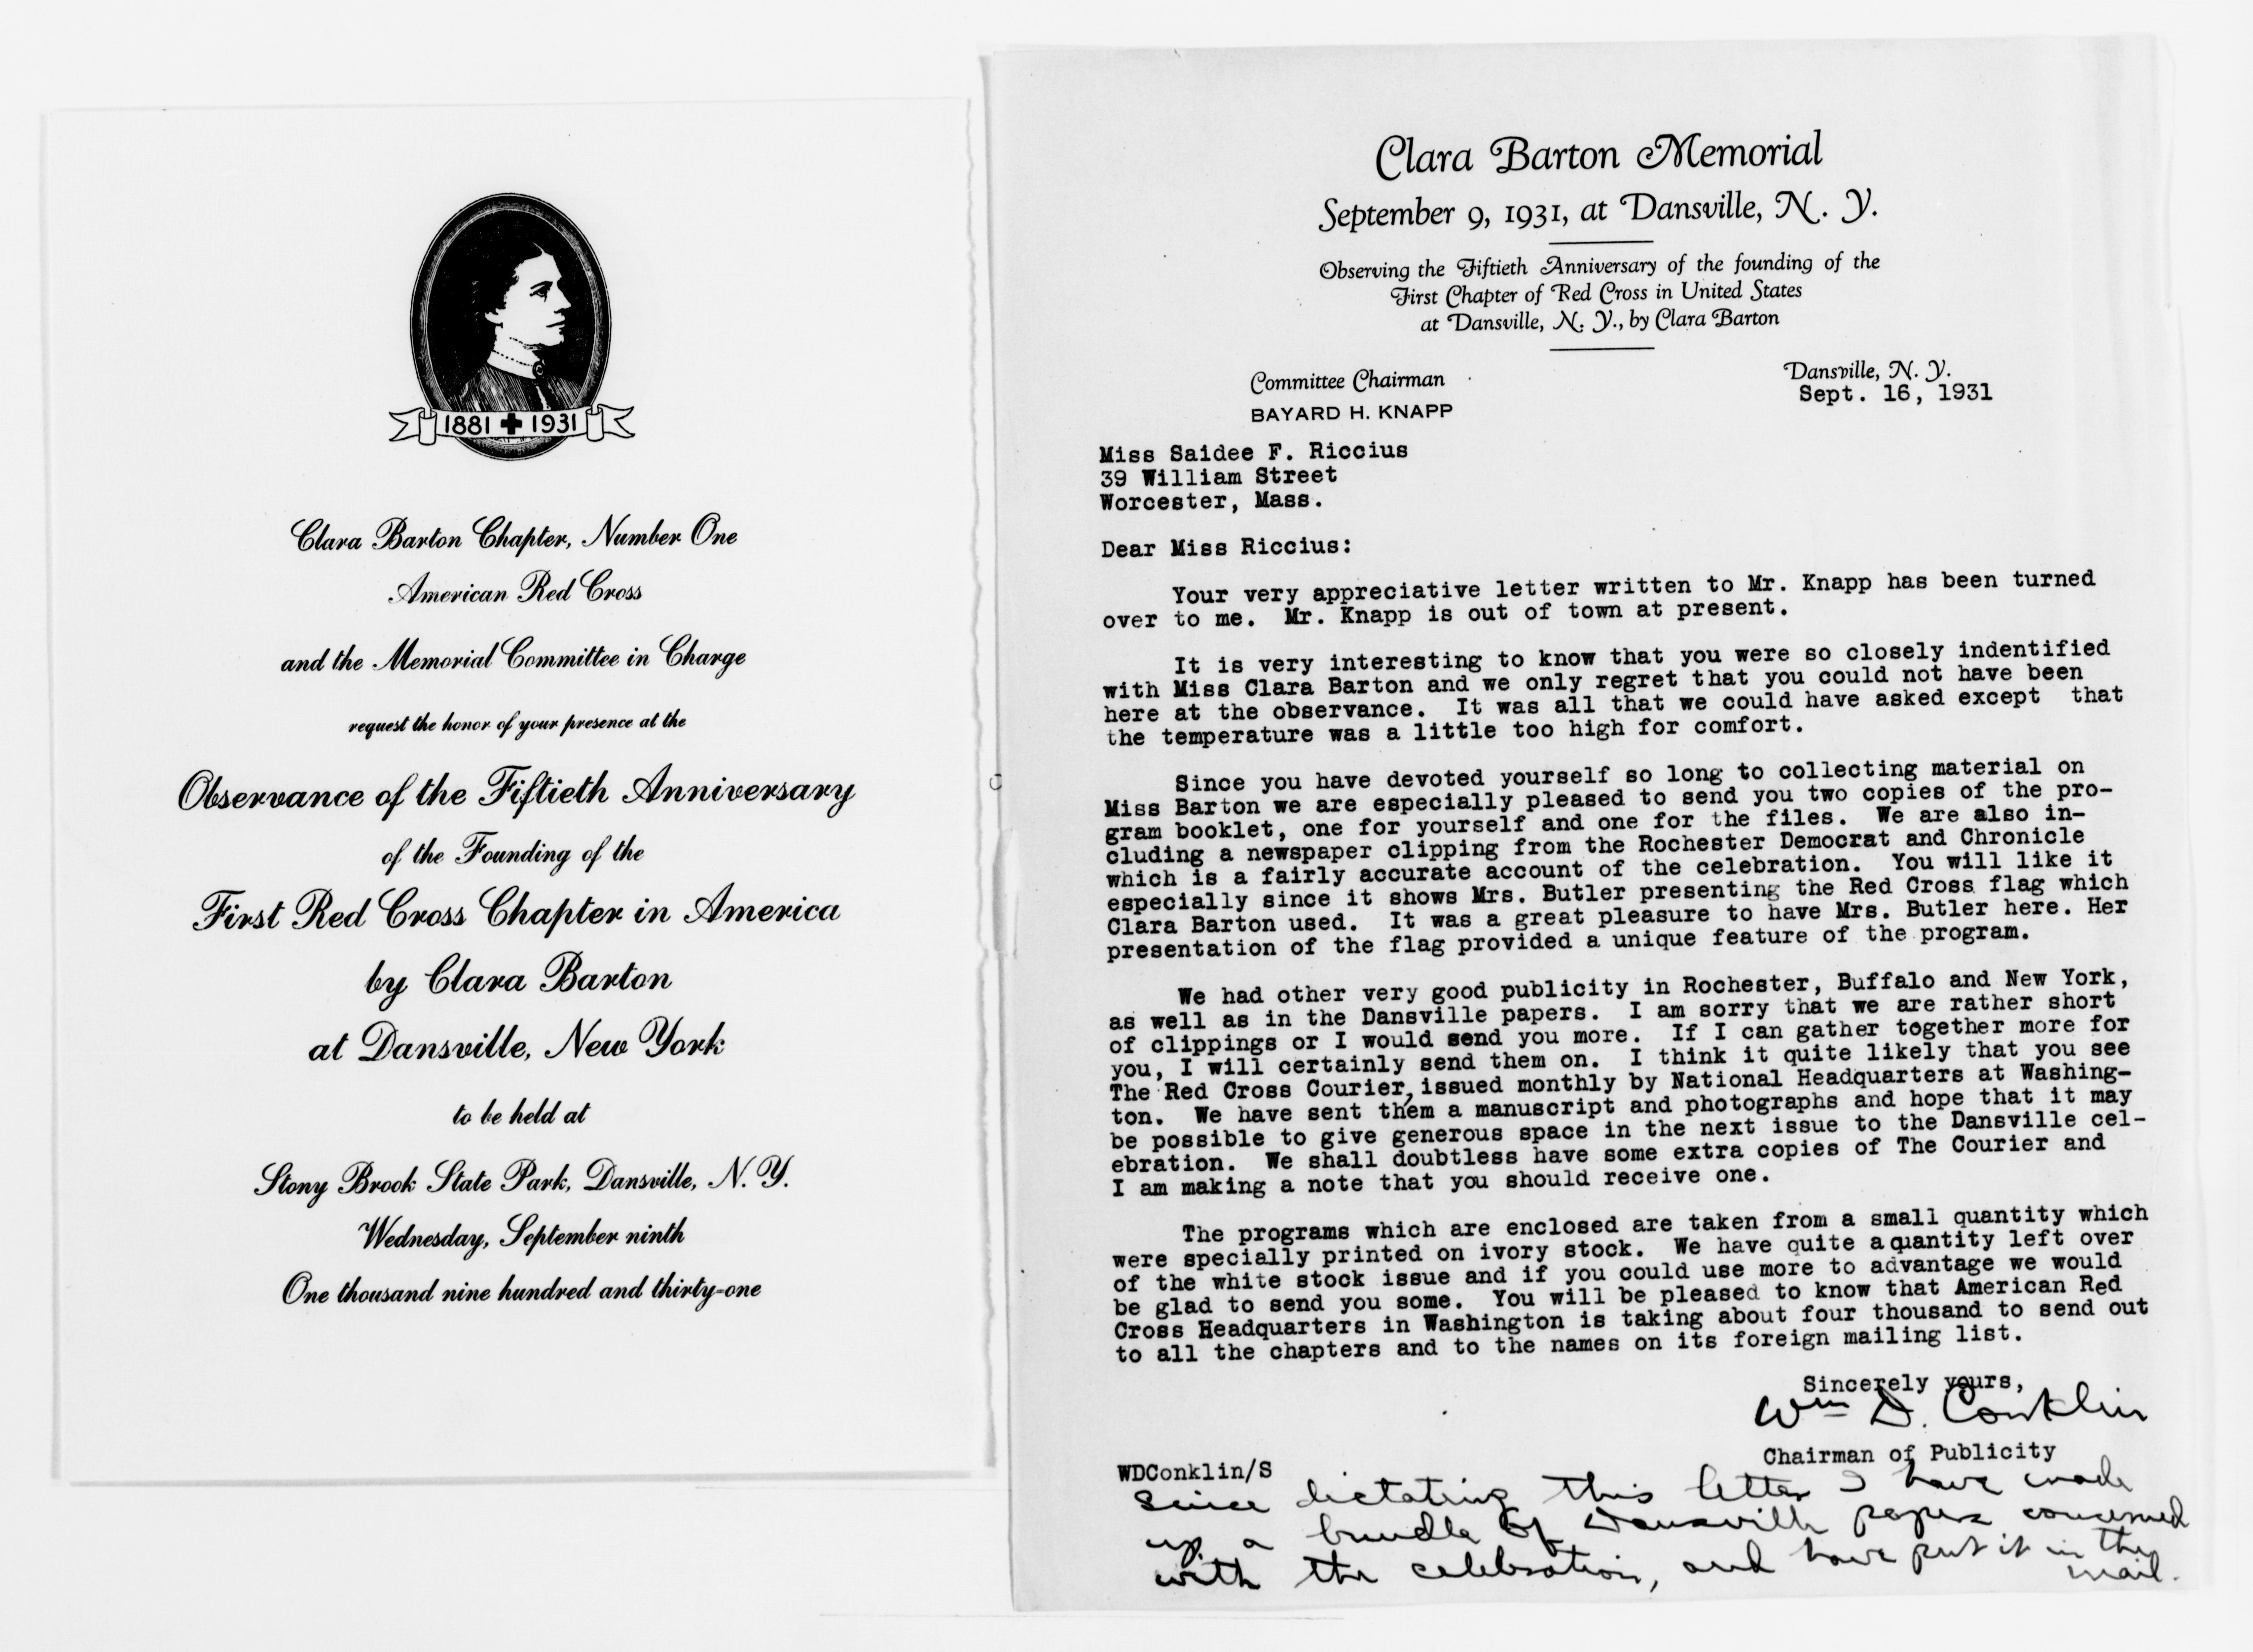 1881 1931
Clara Barton Chapter, Number One
American Red Cross
and the Memorial Committee in Charge
request the honor of your presence at the
Observance of the Fiftieth Anniversary
of the Founding of the
First Red Cross Chapter in America
by Clara Barton
at Dansville, New York
to be held at
Stony Brook State Park, Dansville, N. Y.
Wednesday, September ninth
One thousand nine hundred and thirty-one
Clara Barton Memorial
September 9, 1931, at Dansville, N. Y.
Observing the Fiftieth Anniversary of the founding of the
First Chapter of Red Cross in United States
at Dansville, N. Y., by Clara Barton
Committee Chairman
BAYARD H. KNAPP
Dansville, N. Y.
Sept. 16, 1931
Miss Saidee F. Riccius
39 William Street
Worcester, Mass.
Dear Miss Riccius:
Your very appreciative letter written to Mr. Knapp has been turned
over to me. Mr. Knapp is out of town at present.
It is very interesting to know that you were so closely indentified
with Miss Clara Barton and we only regret that you could not have been
here at the observance. It was all that we could have asked except that
the temperature was a little too high for comfort.
Since you have devoted yourself so long to collecting material on
Miss Barton we are especially pleased to send you two copies of the pro-
gram booklet, one for yourself and one for the files. We are also in-
cluding a newspaper clipping from the Rochester Democrat and Chronicle
which is a fairly accurate account of the celebration. You will like it
especially since it shows Mrs. Butler presenting the Red Cross flag which
Clara Barton used. It was a great pleasure to have Mrs. Butler here. Her
presentation of the flag provided a unique feature of the program.
We had other very good publicity in Rochester, Buffalo and New York,
as well as in the Dansville papers. I am sorry that we are rather short
of clippings or I would send you more. If I can gather together more for
you, I will certainly send them on. I think it quite likely that you see
The Red Cross Courier, issued monthly by National Headquarters at Washing-
ton. We have sent them a manuscript and photographs and hope that it may
be possible to give generous space in the next issue to the Dansville cel-
ebration. We shall doubtless have some extra copies of The Courier and
I am making a note that you should receive one.
The programs which are enclosed are taken from a small quantity which
were specially printed on ivory stock. We have quite a quantity left over
of the white stock issue and if you could use more to advantage we would
be glad to send you some. You will be pleased to know that American Red
Cross Headquarters in Washington is taking about four thousand to send out
to all the chapters and to the names on its foreign mailing list.
Sincerely yours,
Wm D. Conklin
Chairman of Publicity
WDConklin/S
Since dictating this letter I have made
up a bundle of Dansville papers concerned
with the celebration, and have put it in the
mail.